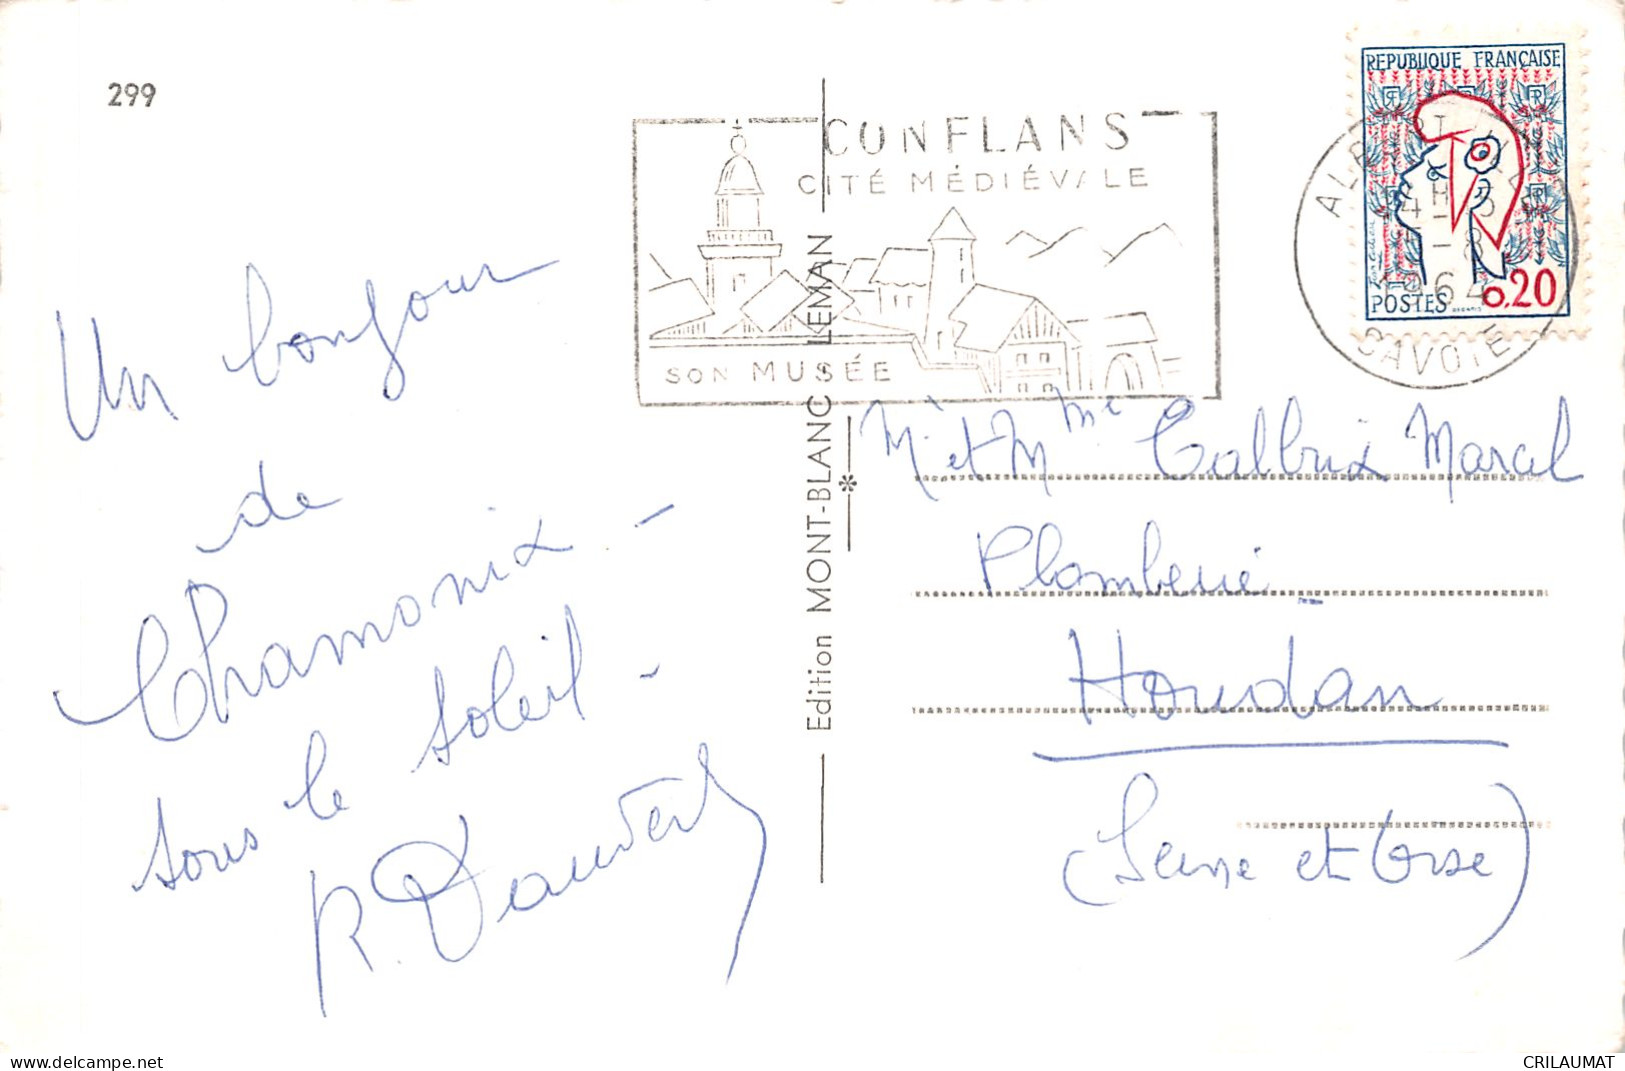 299
Un bonjour
de
Chamonix -
sous le soleil -
R. Dauvert
Edition MONT-BLANC LEMAN
CONFLANS
CITÉ MÉDIÉVALE
SON MUSÉE
REPUBLIQUE FRANÇAISE
POSTES 0.20
1964
SAVOIE
Mr et Mme Calbrix Marcel
Plomberie
Houdan
(Seine et Oise)
delcampe.net
CRILAUMAT